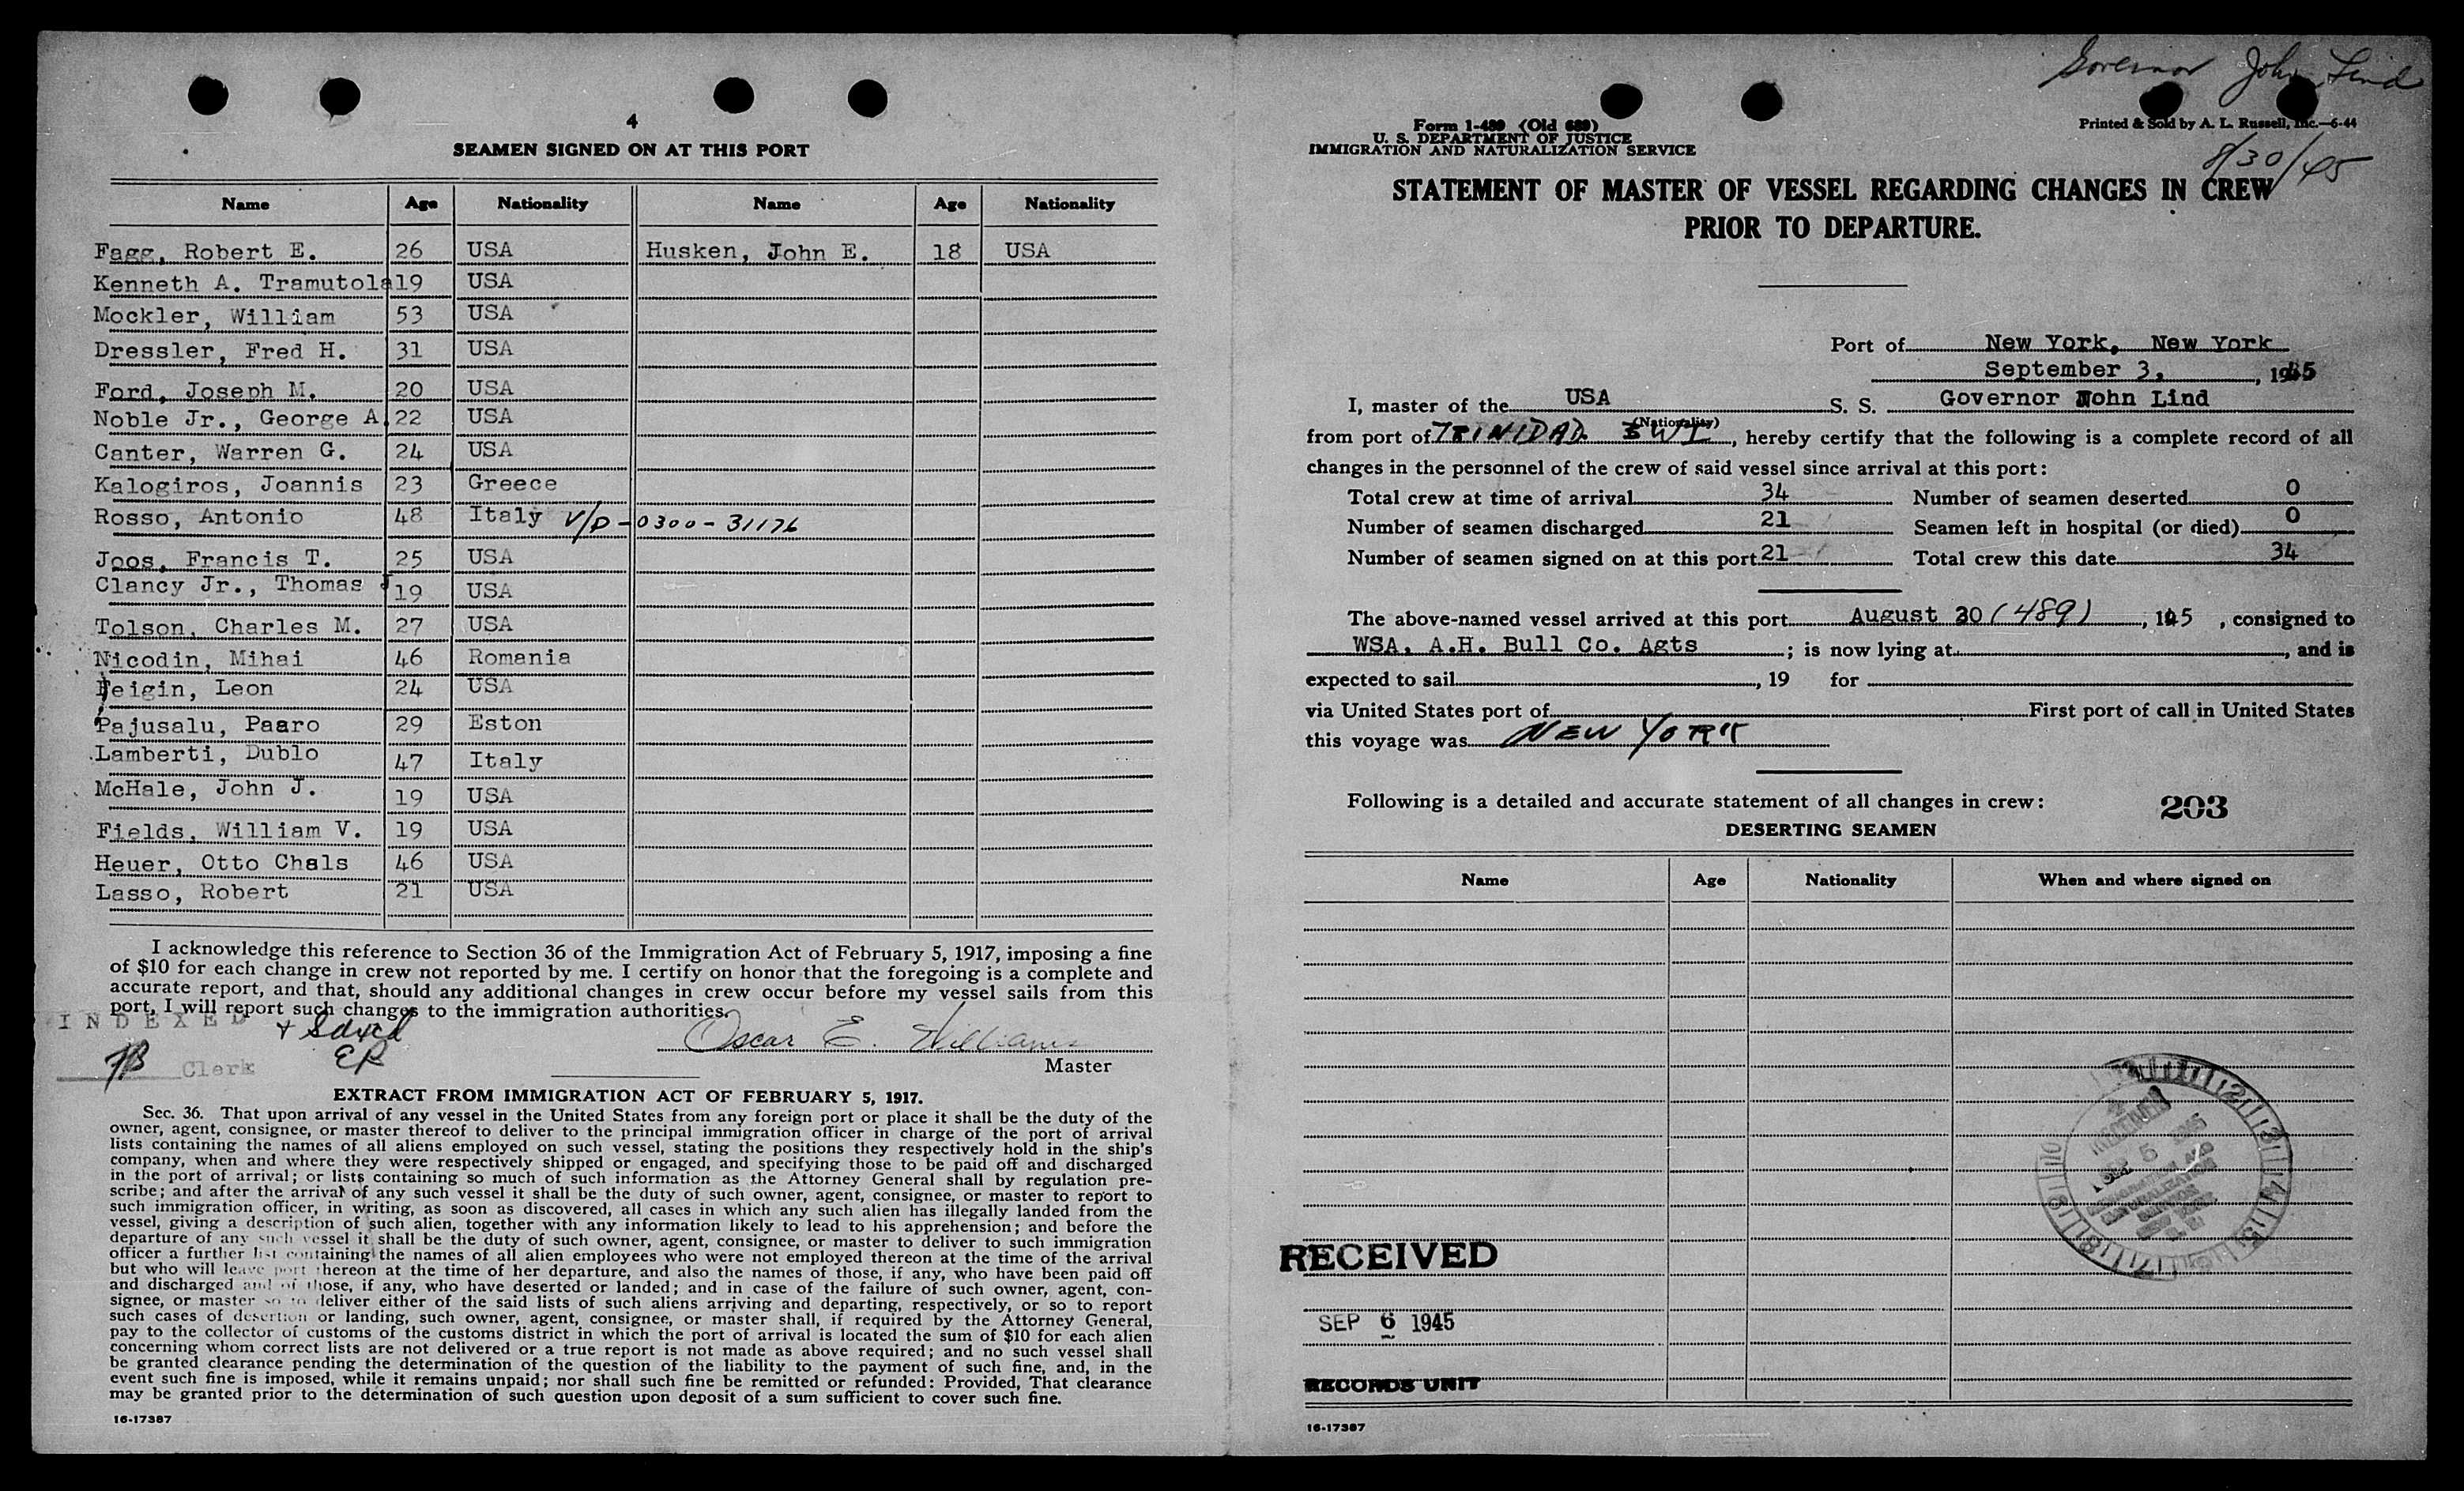 4
SEAMEN SIGNED ON AT THIS PORT
Name Age Nationality Name Age Nationality
Fagg, Robert E. 26 USA Husken, John E. 18 USA
Kenneth A. Tramutola 19 USA
Mockler, William 53 USA
Dressler, Fred H. 31 USA
Ford, Joseph M. 20 USA
Noble Jr., George A. 22 USA
Canter, Warren G. 24 USA
Kalogiros, Joannis 23 Greece
Rosso, Antonio 48 Italy V/P-0300-31176
Joos, Francis T. 25 USA
Clancy Jr., Thomas J 19 USA
Tolson, Charles M. 27 USA
Nicodin, Mihai 46 Romania
Feigin, Leon 24 USA
Pajusalu, Paaro 29 Eston
Lamberti, Dublo 47 Italy
McHale, John J. 19 USA
Fields, William V. 19 USA
Heuer, Otto Chals 46 USA
Lasso, Robert 21 USA
I acknowledge this reference to Section 36 of the Immigration Act of February 5, 1917, imposing a fine
of $10 for each change in crew not reported by me. I certify on honor that the foregoing is a complete and
accurate report, and that, should any additional changes in crew occur before my vessel sails from this
port, I will report such changes to the immigration authorities.
INDEXED
Oscar E. Williams
Clerk ER
Master
EXTRACT FROM IMMIGRATION ACT OF FEBRUARY 5, 1917.
Sec. 36. That upon arrival of any vessel in the United States from any foreign port or place it shall be the duty of the
owner, agent, consignee, or master thereof to deliver to the principal immigration officer in charge of the port of arrival
lists containing the names of all aliens employed on such vessel, stating the positions they respectively hold in the ship's
company, when and where they were respectively shipped or engaged, and specifying those to be paid off and discharged
in the port of arrival; or lists containing so much of such information as the Attorney General shall by regulation pre-
scribe; and after the arrival of any such vessel it shall be the duty of such owner, agent, consignee, or master to report to
such immigration officer, in writing, as soon as discovered, all cases in which any such alien has illegally landed from the
vessel, giving a description of such alien, together with any information likely to lead to his apprehension; and before the
departure of any such vessel it shall be the duty of such owner, agent, consignee, or master to deliver to such immigration
officer a further list containing the names of all alien employees who were not employed thereon at the time of the arrival
but who will leave port thereon at the time of her departure, and also the names of those, if any, who have been paid off
and discharged and of those, if any, who have deserted or landed; and in case of the failure of such owner, agent, con-
signee, or master so to deliver either of the said lists of such aliens arriving and departing, respectively, or so to report
such cases of desertion or landing, such owner, agent, consignee, or master shall, if required by the Attorney General,
pay to the collector of customs of the customs district in which the port of arrival is located the sum of $10 for each alien
concerning whom correct lists are not delivered or a true report is not made as above required; and no such vessel shall
be granted clearance pending the determination of the question of the liability to the payment of such fine, and, in the
event such fine is imposed, while it remains unpaid; nor shall such fine be remitted or refunded: Provided, That clearance
may be granted prior to the determination of such question upon deposit of a sum sufficient to cover such fine.
16-17387
Governor John Lind
Form 1-489 (Old 689)
U. S. DEPARTMENT OF JUSTICE
IMMIGRATION AND NATURALIZATION SERVICE
Printed & Sold by A. L. Russell, Inc.—6-44
8/30/45
STATEMENT OF MASTER OF VESSEL REGARDING CHANGES IN CREW
PRIOR TO DEPARTURE.
Port of New York, New York
September 3, , 1945
I, master of the USA S. S. Governor John Lind
(Nationality)
from port of TRINIDAD BWI, hereby certify that the following is a complete record of all
changes in the personnel of the crew of said vessel since arrival at this port:
Total crew at time of arrival 34 Number of seamen deserted 0
Number of seamen discharged 21 Seamen left in hospital (or died) 0
Number of seamen signed on at this port 21 Total crew this date 34
The above-named vessel arrived at this port August 30 (489), 1945, consigned to
WSA. A.H. Bull Co. Agts ; is now lying at , and is
expected to sail , 19 for
via United States port of First port of call in United States
this voyage was NEW YORK
Following is a detailed and accurate statement of all changes in crew:
203
DESERTING SEAMEN
Name Age Nationality When and where signed on
RECEIVED
SEP 6 1945
RECORDS UNIT
16-17387